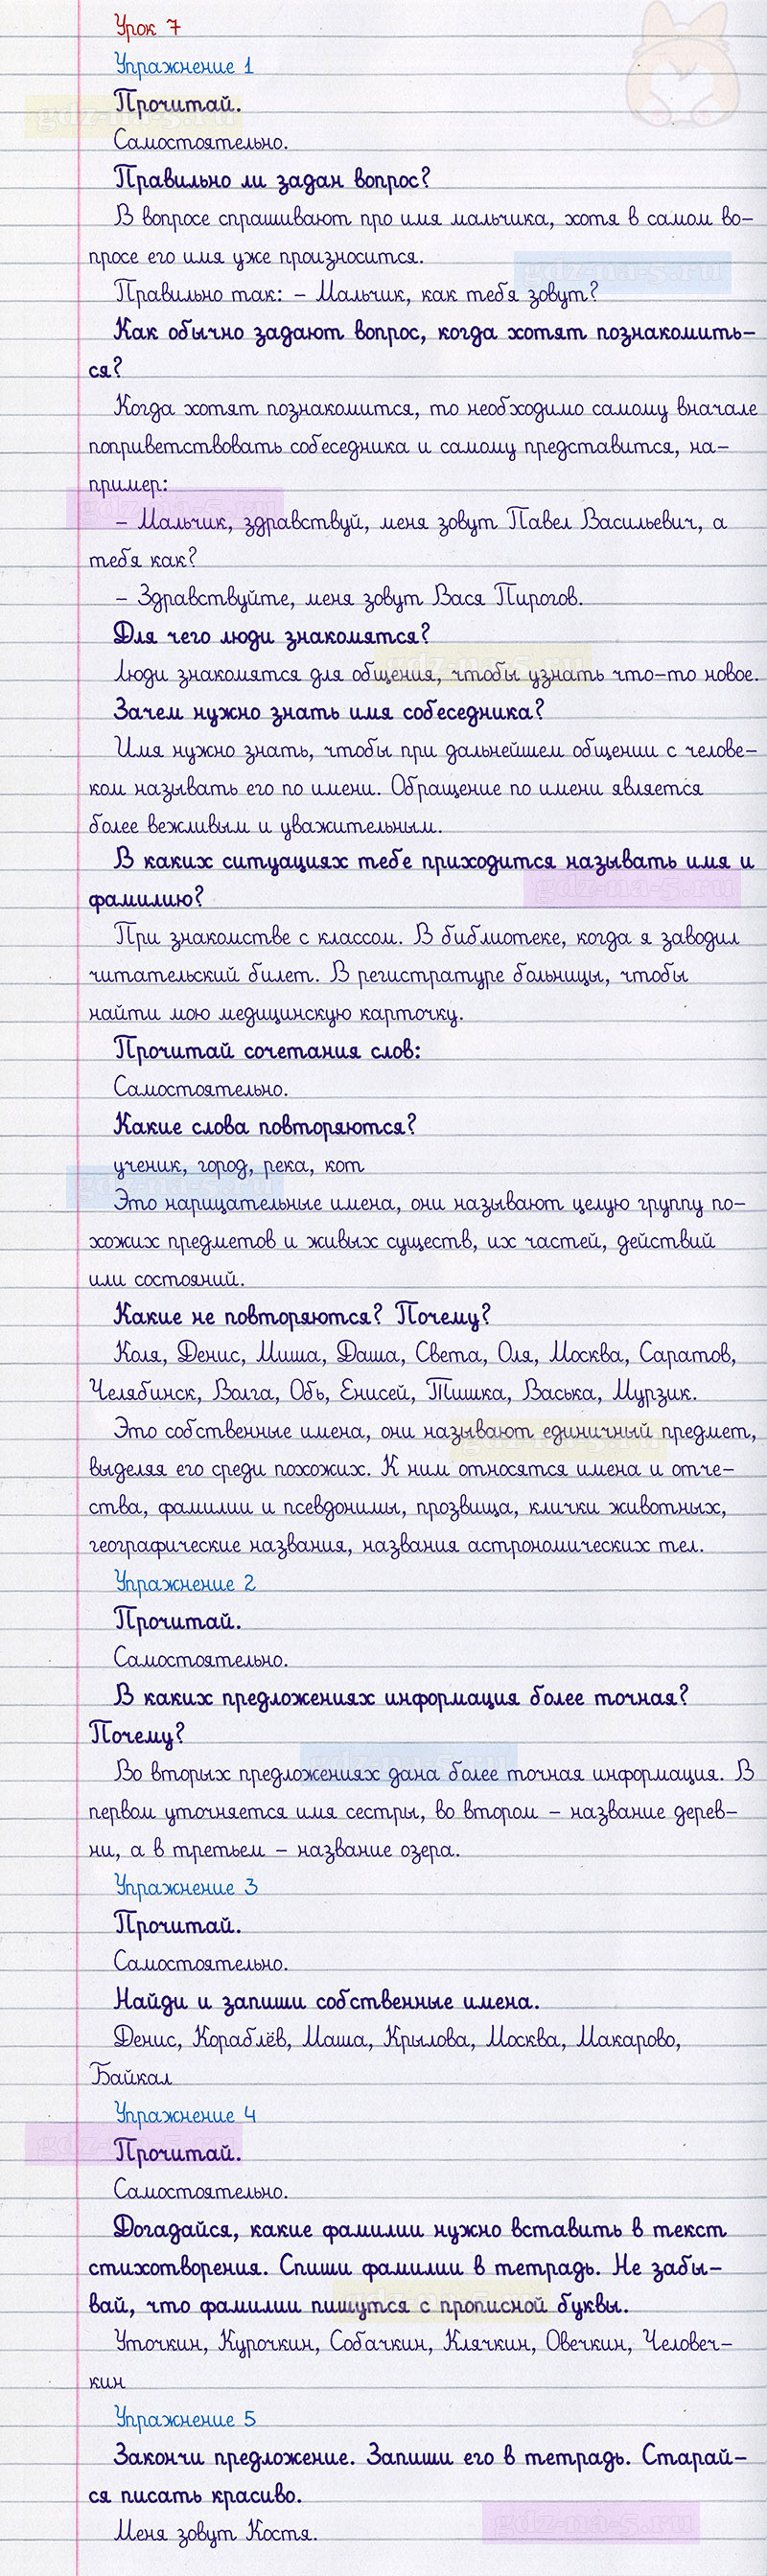 Урок 7
Упражнение 1
Прочитай.
gdz-na-5.ru
Самостоятельно.
Правильно ли задан вопрос?
В вопросе спрашивают про имя мальчика, хотя в самом во-
просе его имя уже произносится.
gdz-na-5.ru
Правильно так: – Мальчик, как тебя зовут?
Как обычно задают вопрос, когда хотят познакомить-
ся?
Когда хотят познакомится, то необходимо самому вначале
поприветствовать собеседника и самому представится, на-
пример:
gdz-na-5.ru
– Мальчик, здравствуй, меня зовут Павел Васильевич, а
тебя как?
– Здравствуйте, меня зовут Вася Пирогов.
Для чего люди знакомятся?
gdz-na-5.ru
Люди знакомятся для общения, чтобы узнать что-то новое.
Зачем нужно знать имя собеседника?
Имя нужно знать, чтобы при дальнейшем общении с челове-
ком называть его по имени. Обращение по имени является
более вежливым и уважительным.
В каких ситуациях тебе приходится называть имя и
фамилию?
gdz-na-5.ru
При знакомстве с классом. В библиотеке, когда я заводил
читательский билет. В регистратуре больницы, чтобы
найти мою медицинскую карточку.
Прочитай сочетания слов:
Самостоятельно.
Какие слова повторяются?
ученик, город, река, кот
gdz-na-5.ru
Это нарицательные имена, они называют целую группу по-
хожих предметов и живых существ, их частей, действий
или состояний.
Какие не повторяются? Почему?
Коля, Денис, Миша, Даша, Света, Оля, Москва, Саратов,
Челябинск, Волга, Обь, Енисей, Тишка, Васька, Мурзик.
Это собственные имена, они называют единичный предмет,
gdz-na-5.ru
выделяя его среди похожих. К ним относятся имена и отче-
ства, фамилии и псевдонимы, прозвища, клички животных,
географические названия, названия астрономических тел.
Упражнение 2
Прочитай.
Самостоятельно.
В каких предложениях информация более точная?
Почему?
gdz-na-5.ru
Во вторых предложениях дана более точная информация. В
первом уточняется имя сестры, во втором – название дерев-
ни, а в третьем – название озера.
Упражнение 3
Прочитай.
Самостоятельно.
Найди и запиши собственные имена.
Денис, Кораблёв, Маша, Крылова, Москва, Макарово,
Байкал
Упражнение 4
gdz-na-5.ru
Прочитай.
Самостоятельно.
Догадайся, какие фамилии нужно вставить в текст
стихотворения. Спиши фамилии в тетрадь. Не забы-
вай, что фамилии пишутся с прописной буквы.
gdz-na-5.ru
Уточкин, Курочкин, Собачкин, Клячкин, Овечкин, Человеч-
кин
Упражнение 5
Закончи предложение. Запиши его в тетрадь. Старай-
ся писать красиво.
gdz-na-5.ru
Меня зовут Костя.